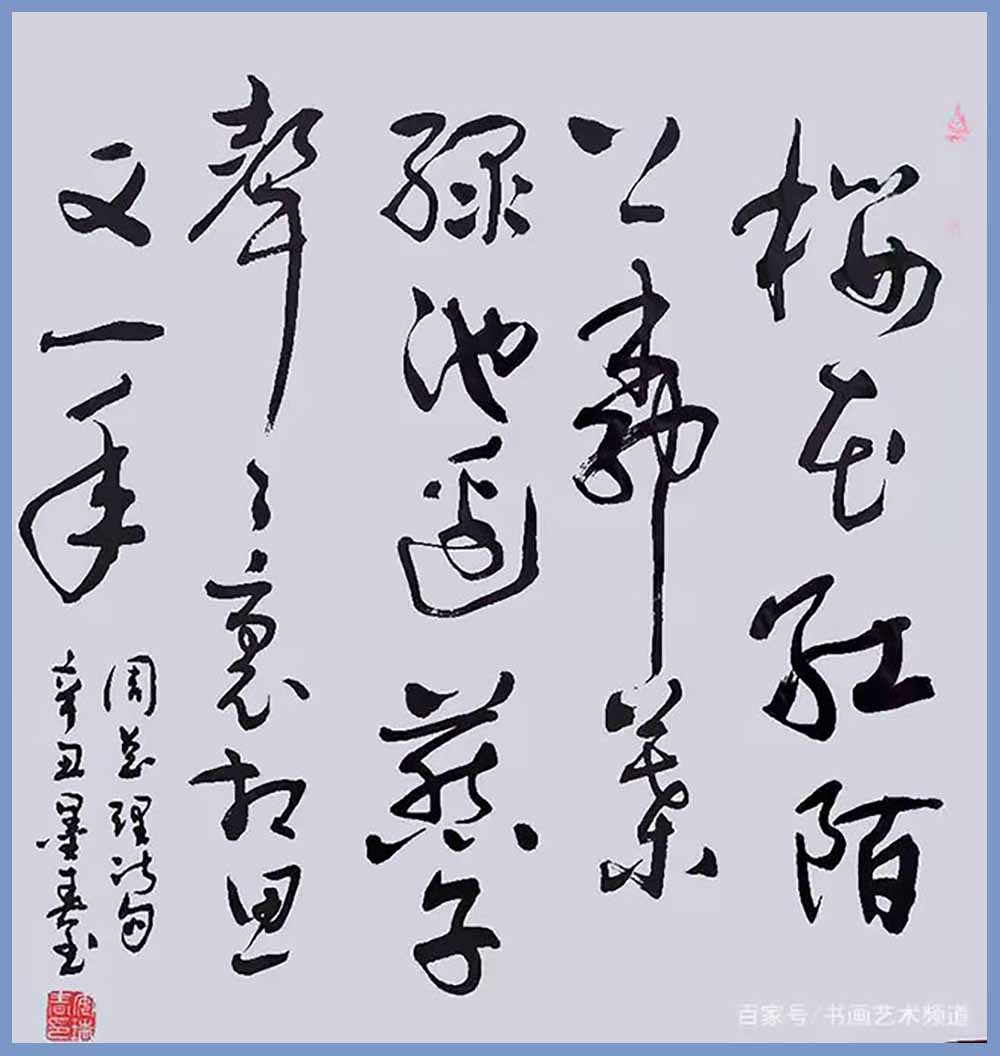 樱花红陌
上柳葉
绿池边燕子
聲々裏相思
又一年
周总理诗句
辛丑墨
百家号/书画艺术频道